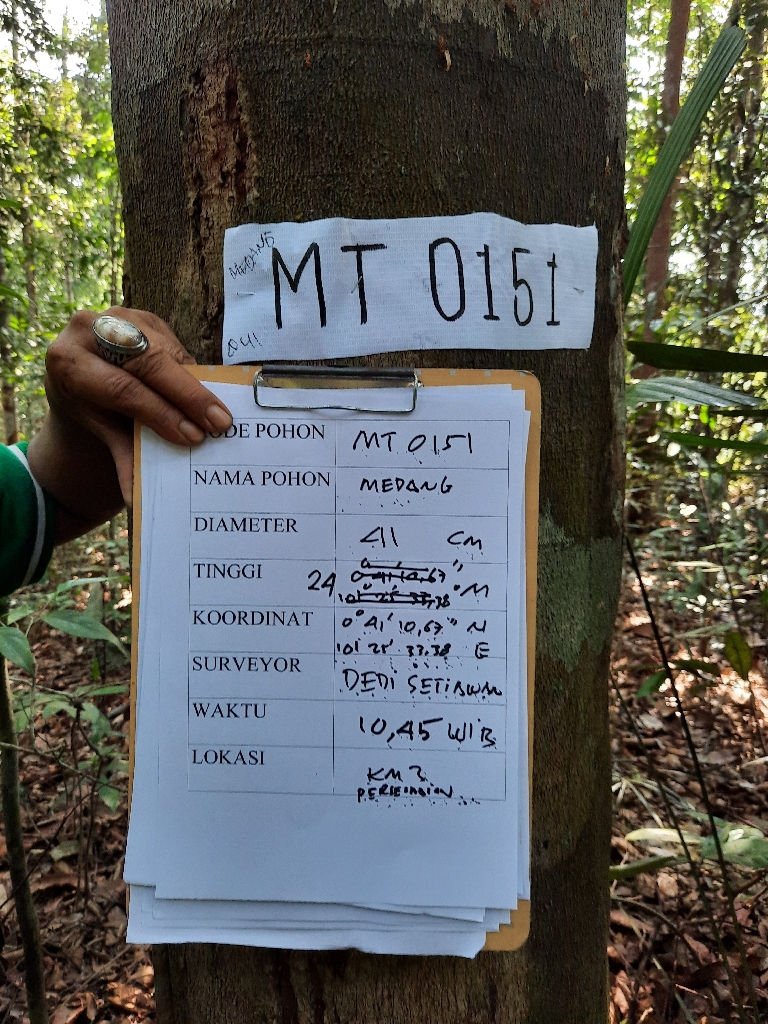 MEDANG
MT 0151
Ø 41
KODE POHON MT 0151
NAMA POHON MEDANG
DIAMETER 41 CM
TINGGI 24 M
KOORDINAT 0° 41' 10,67" N
101 25' 33.38 E
SURVEYOR DEDI SETIAWAN
WAKTU 10,45 WIB
LOKASI KM 2